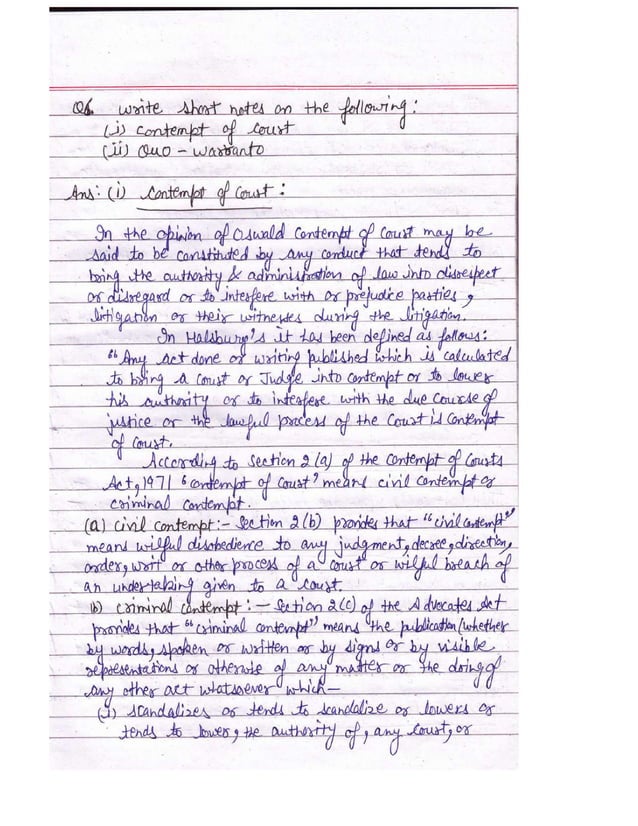 Q6. Write short notes on the following:
(i) Contempt of Court
(ii) Quo-Warranto
Ans: (i) Contempt of Court:
In the opinion of Oswald Contempt of Court may be
said to be constituted by any conduct that tends to
bring the authority & administration of law into disrespect
or disregard or to interfere with or prejudice parties,
litigation or their witnesses during the litigation.
In Halsbury's it has been defined as follows:
"Any act done or writing published which is calculated
to bring a court or Judge into contempt or to lower
his authority or to interfere with the due course of
justice or the lawful process of the Court is contempt
of court.
According to section 2(a) of the Contempt of Courts
Act, 1971 'contempt of court' means civil contempt or
criminal contempt.
(a) civil contempt:- Section 2(b) provides that "civil contempt"
means wilful disobedience to any judgment, decree, direction,
order, writ or other process of a court or wilful breach of
an undertaking given to a court.
b) criminal contempt:- Section 2(c) of the Advocates Act
provides that "criminal contempt" means the publication (whether
by words, spoken or written or by signs or by visible
representations or otherwise of any matter or the doing of
any other act whatsoever which—
(i) scandalizes or tends to scandalize or lowers or
tends to lower, the authority of, any court, or